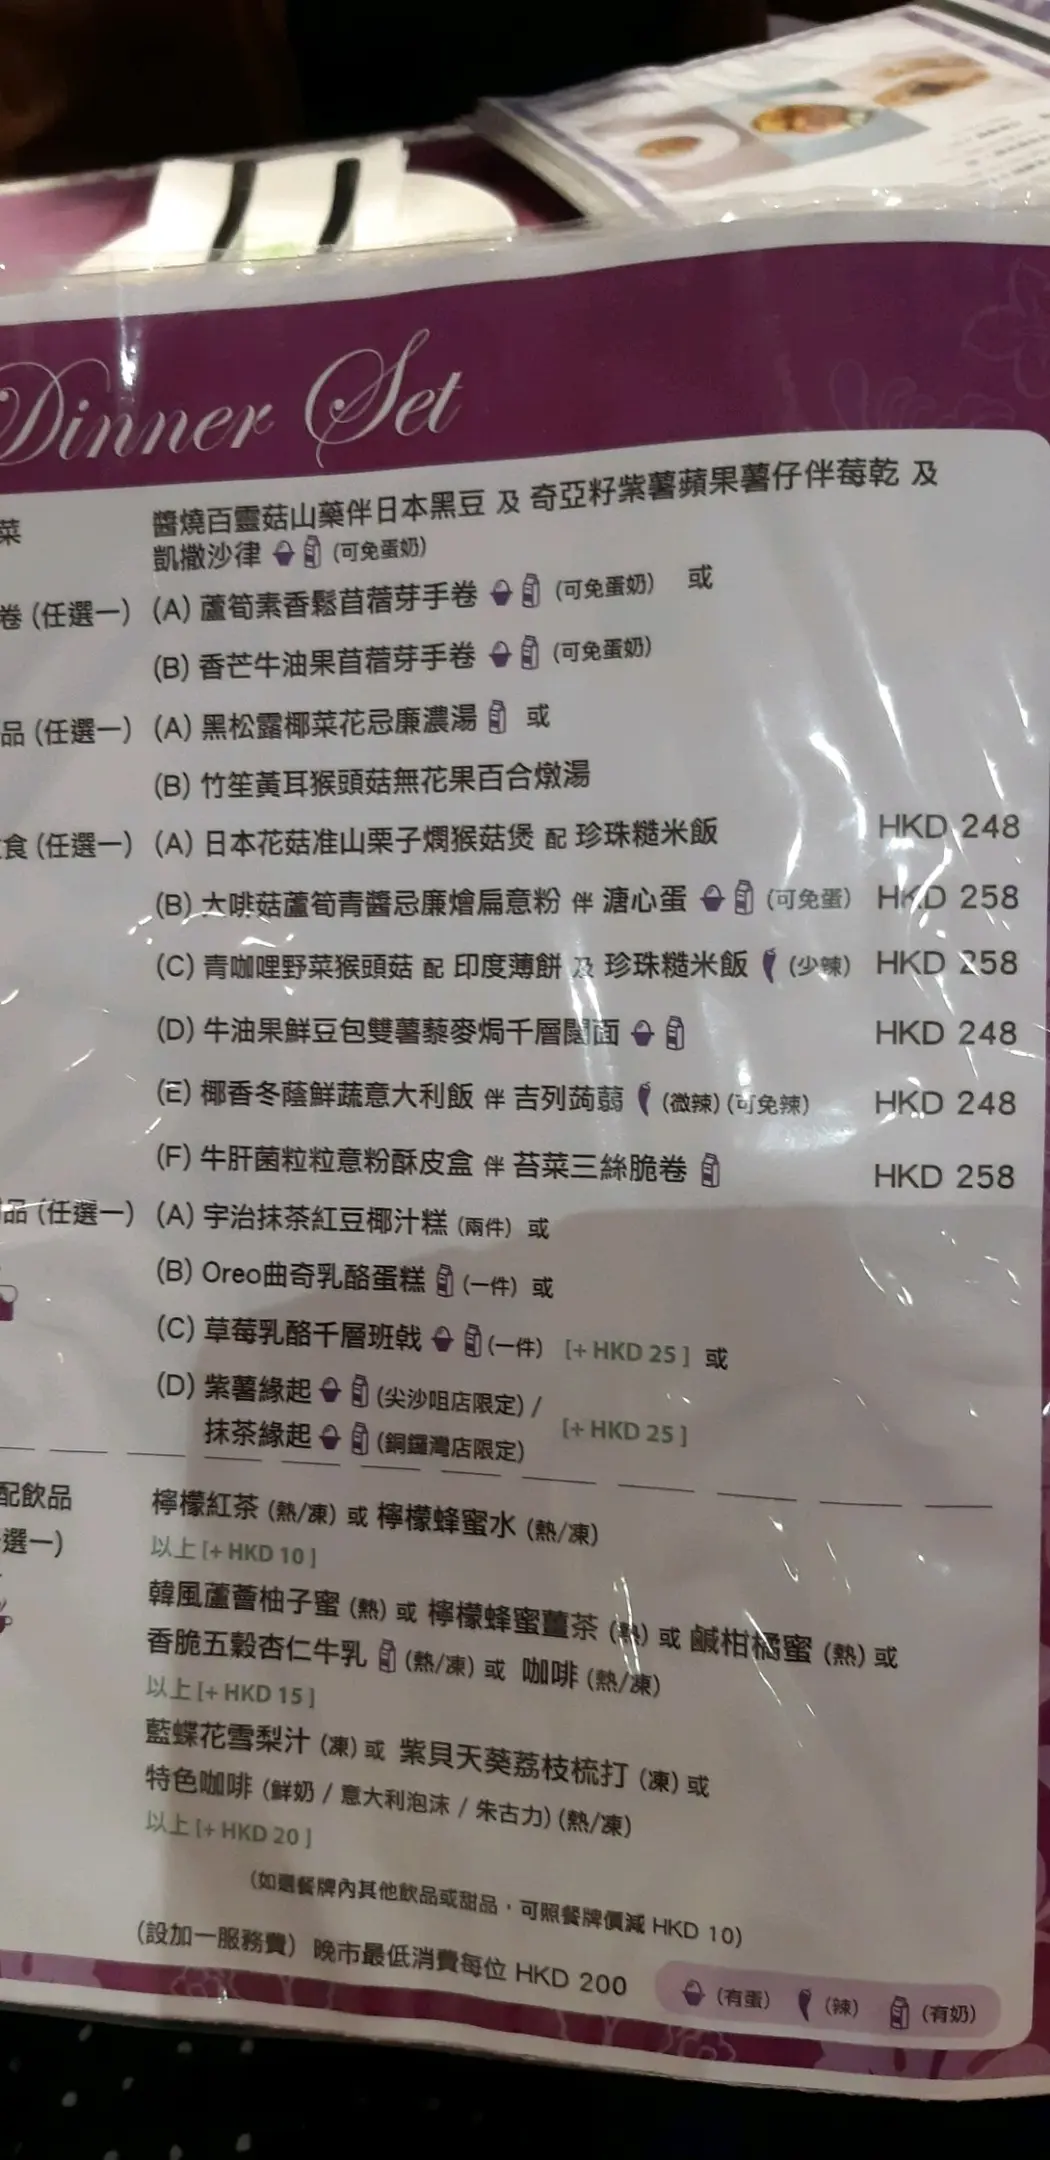 Dinner Set
菜 醬燒百靈菇山藥伴日本黑豆 及 奇亞籽紫薯蘋果薯仔伴莓乾 及
凱撒沙律 (可免蛋奶)
卷 (任選一) (A) 蘆筍素香鬆苜蓿芽手卷 (可免蛋奶) 或
(B) 香芒牛油果苜蓿芽手卷 (可免蛋奶)
品 (任選一) (A) 黑松露椰菜花忌廉濃湯 或
(B) 竹笙黃耳猴頭菇無花果百合燉湯
食 (任選一) (A) 日本花菇准山栗子燜猴菇煲 配 珍珠糙米飯 HKD 248
(B) 大啡菇蘆筍青醬忌廉燴扁意粉 伴 溏心蛋 (可免蛋) HKD 258
(C) 青咖喱野菜猴頭菇 配 印度薄餅 及 珍珠糙米飯 (少辣) HKD 258
(D) 牛油果鮮豆包雙薯藜麥焗千層闊面 HKD 248
(E) 椰香冬蔭鮮蔬意大利飯 伴 吉列蒟蒻 (微辣) (可免辣) HKD 248
(F) 牛肝菌粒粒意粉酥皮盒 伴 苔菜三絲脆卷 HKD 258
品 (任選一) (A) 宇治抹茶紅豆椰汁糕 (兩件) 或
(B) Oreo曲奇乳酪蛋糕 (一件) 或
(C) 草莓乳酪千層班戟 (一件) [+ HKD 25] 或
(D) 紫薯緣起 (尖沙咀店限定) /
抹茶緣起 (銅鑼灣店限定) [+ HKD 25]
配飲品 檸檬紅茶 (熱/凍) 或 檸檬蜂蜜水 (熱/凍)
選一) 以上 [+ HKD 10]
韓風蘆薈柚子蜜 (熱) 或 檸檬蜂蜜薑茶 (熱) 或 鹹柑橘蜜 (熱) 或
香脆五穀杏仁牛乳 (熱/凍) 或 咖啡 (熱/凍)
以上 [+ HKD 15]
藍蝶花雪梨汁 (凍) 或 紫貝天葵荔枝梳打 (凍) 或
特色咖啡 (鮮奶 / 意大利泡沫 / 朱古力) (熱/凍)
以上 [+ HKD 20]
(如選餐牌內其他飲品或甜品，可照餐牌價減 HKD 10)
(設加一服務費) 晚市最低消費每位 HKD 200
(有蛋) (辣) (有奶)